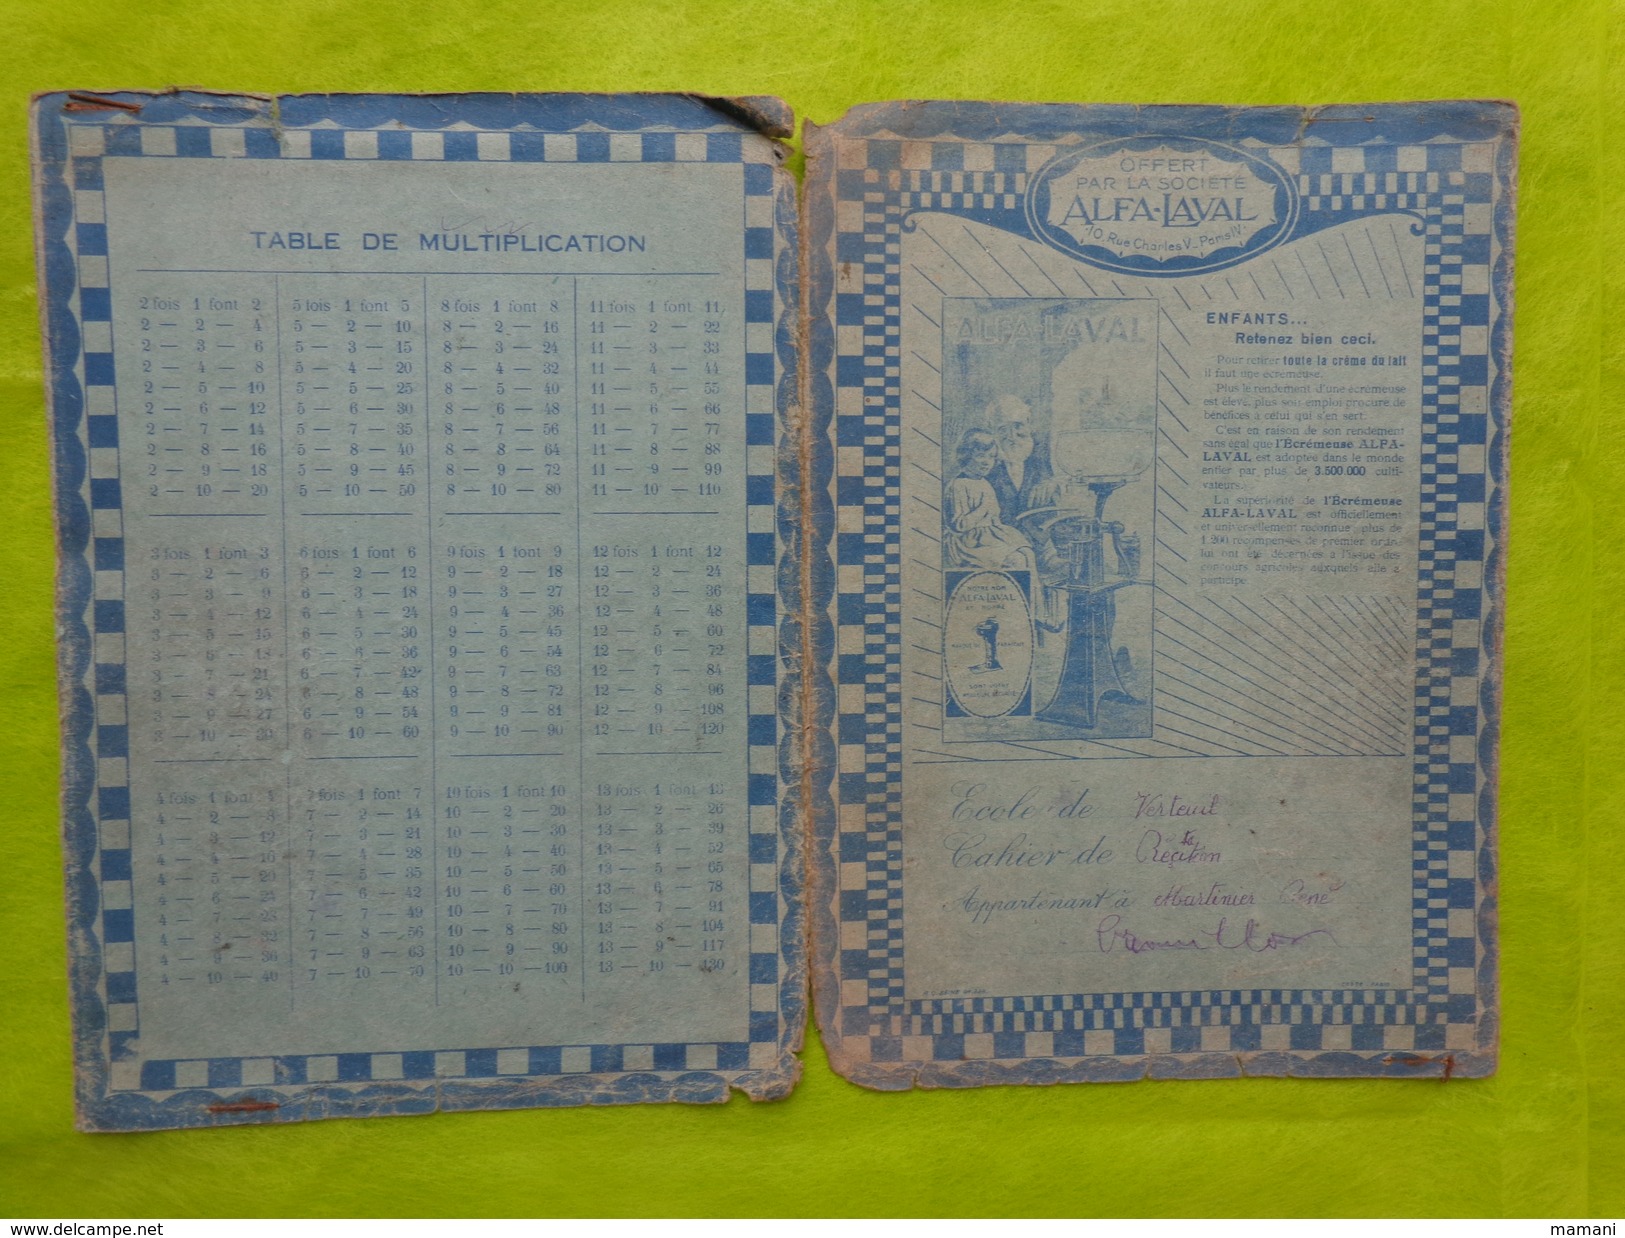 TABLE DE MULTIPLICATION
2 fois 1 font 2
2 — 2 — 4
2 — 3 — 6
2 — 4 — 8
2 — 5 — 10
2 — 6 — 12
2 — 7 — 14
2 — 8 — 16
2 — 9 — 18
2 — 10 — 20
3 fois 1 font 3
3 — 2 — 6
3 — 3 — 9
3 — 4 — 12
3 — 5 — 15
3 — 6 — 18
3 — 7 — 21
3 — 8 — 24
3 — 9 — 27
3 — 10 — 30
4 fois 1 font 4
4 — 2 — 8
4 — 3 — 12
4 — 4 — 16
4 — 5 — 20
4 — 6 — 24
4 — 7 — 28
4 — 8 — 32
4 — 9 — 36
4 — 10 — 40
5 fois 1 font 5
5 — 2 — 10
5 — 3 — 15
5 — 4 — 20
5 — 5 — 25
5 — 6 — 30
5 — 7 — 35
5 — 8 — 40
5 — 9 — 45
5 — 10 — 50
6 fois 1 font 6
6 — 2 — 12
6 — 3 — 18
6 — 4 — 24
6 — 5 — 30
6 — 6 — 36
6 — 7 — 42
6 — 8 — 48
6 — 9 — 54
6 — 10 — 60
7 fois 1 font 7
7 — 2 — 14
7 — 3 — 21
7 — 4 — 28
7 — 5 — 35
7 — 6 — 42
7 — 7 — 49
7 — 8 — 56
7 — 9 — 63
7 — 10 — 70
8 fois 1 font 8
8 — 2 — 16
8 — 3 — 24
8 — 4 — 32
8 — 5 — 40
8 — 6 — 48
8 — 7 — 56
8 — 8 — 64
8 — 9 — 72
8 — 10 — 80
9 fois 1 font 9
9 — 2 — 18
9 — 3 — 27
9 — 4 — 36
9 — 5 — 45
9 — 6 — 54
9 — 7 — 63
9 — 8 — 72
9 — 9 — 81
9 — 10 — 90
10 fois 1 font 10
10 — 2 — 20
10 — 3 — 30
10 — 4 — 40
10 — 5 — 50
10 — 6 — 60
10 — 7 — 70
10 — 8 — 80
10 — 9 — 90
10 — 10 — 100
11 fois 1 font 11
11 — 2 — 22
11 — 3 — 33
11 — 4 — 44
11 — 5 — 55
11 — 6 — 66
11 — 7 — 77
11 — 8 — 88
11 — 9 — 99
11 — 10 — 110
12 fois 1 font 12
12 — 2 — 24
12 — 3 — 36
12 — 4 — 48
12 — 5 — 60
12 — 6 — 72
12 — 7 — 84
12 — 8 — 96
12 — 9 — 108
12 — 10 — 120
13 fois 1 font 13
13 — 2 — 26
13 — 3 — 39
13 — 4 — 52
13 — 5 — 65
13 — 6 — 78
13 — 7 — 91
13 — 8 — 104
13 — 9 — 117
13 — 10 — 130
OFFERT
PAR LA SOCIÉTÉ
ALFA-LAVAL
10, Rue Charles V_Paris IVᵉ
ALFA-LAVAL
NOTRE NOM
ALFA-LAVAL
ET NOTRE
SONT VOTRE
ENFANTS...
Retenez bien ceci.
Pour retirer toute la crème du lait
il faut une écrémeuse.
Plus le rendement d'une écrémeuse
est élevé, plus son emploi procure de
bénéfices à celui qui s'en sert.
C'est en raison de son rendement
sans égal que l'Écrémeuse ALFA-
LAVAL est adoptée dans le monde
entier par plus de 3.500.000 culti-
vateurs.
La supériorité de l'Écrémeuse
ALFA-LAVAL est officiellement
et universellement reconnue, plus de
1.200 récompenses de premier ordre
lui ont été décernées à l'issue des
concours agricoles auxquels elle a
participé.
Ecole de Verteuil
Cahier de Récitation
Appartenant à Martinier René
mamani
www.delcampe.net